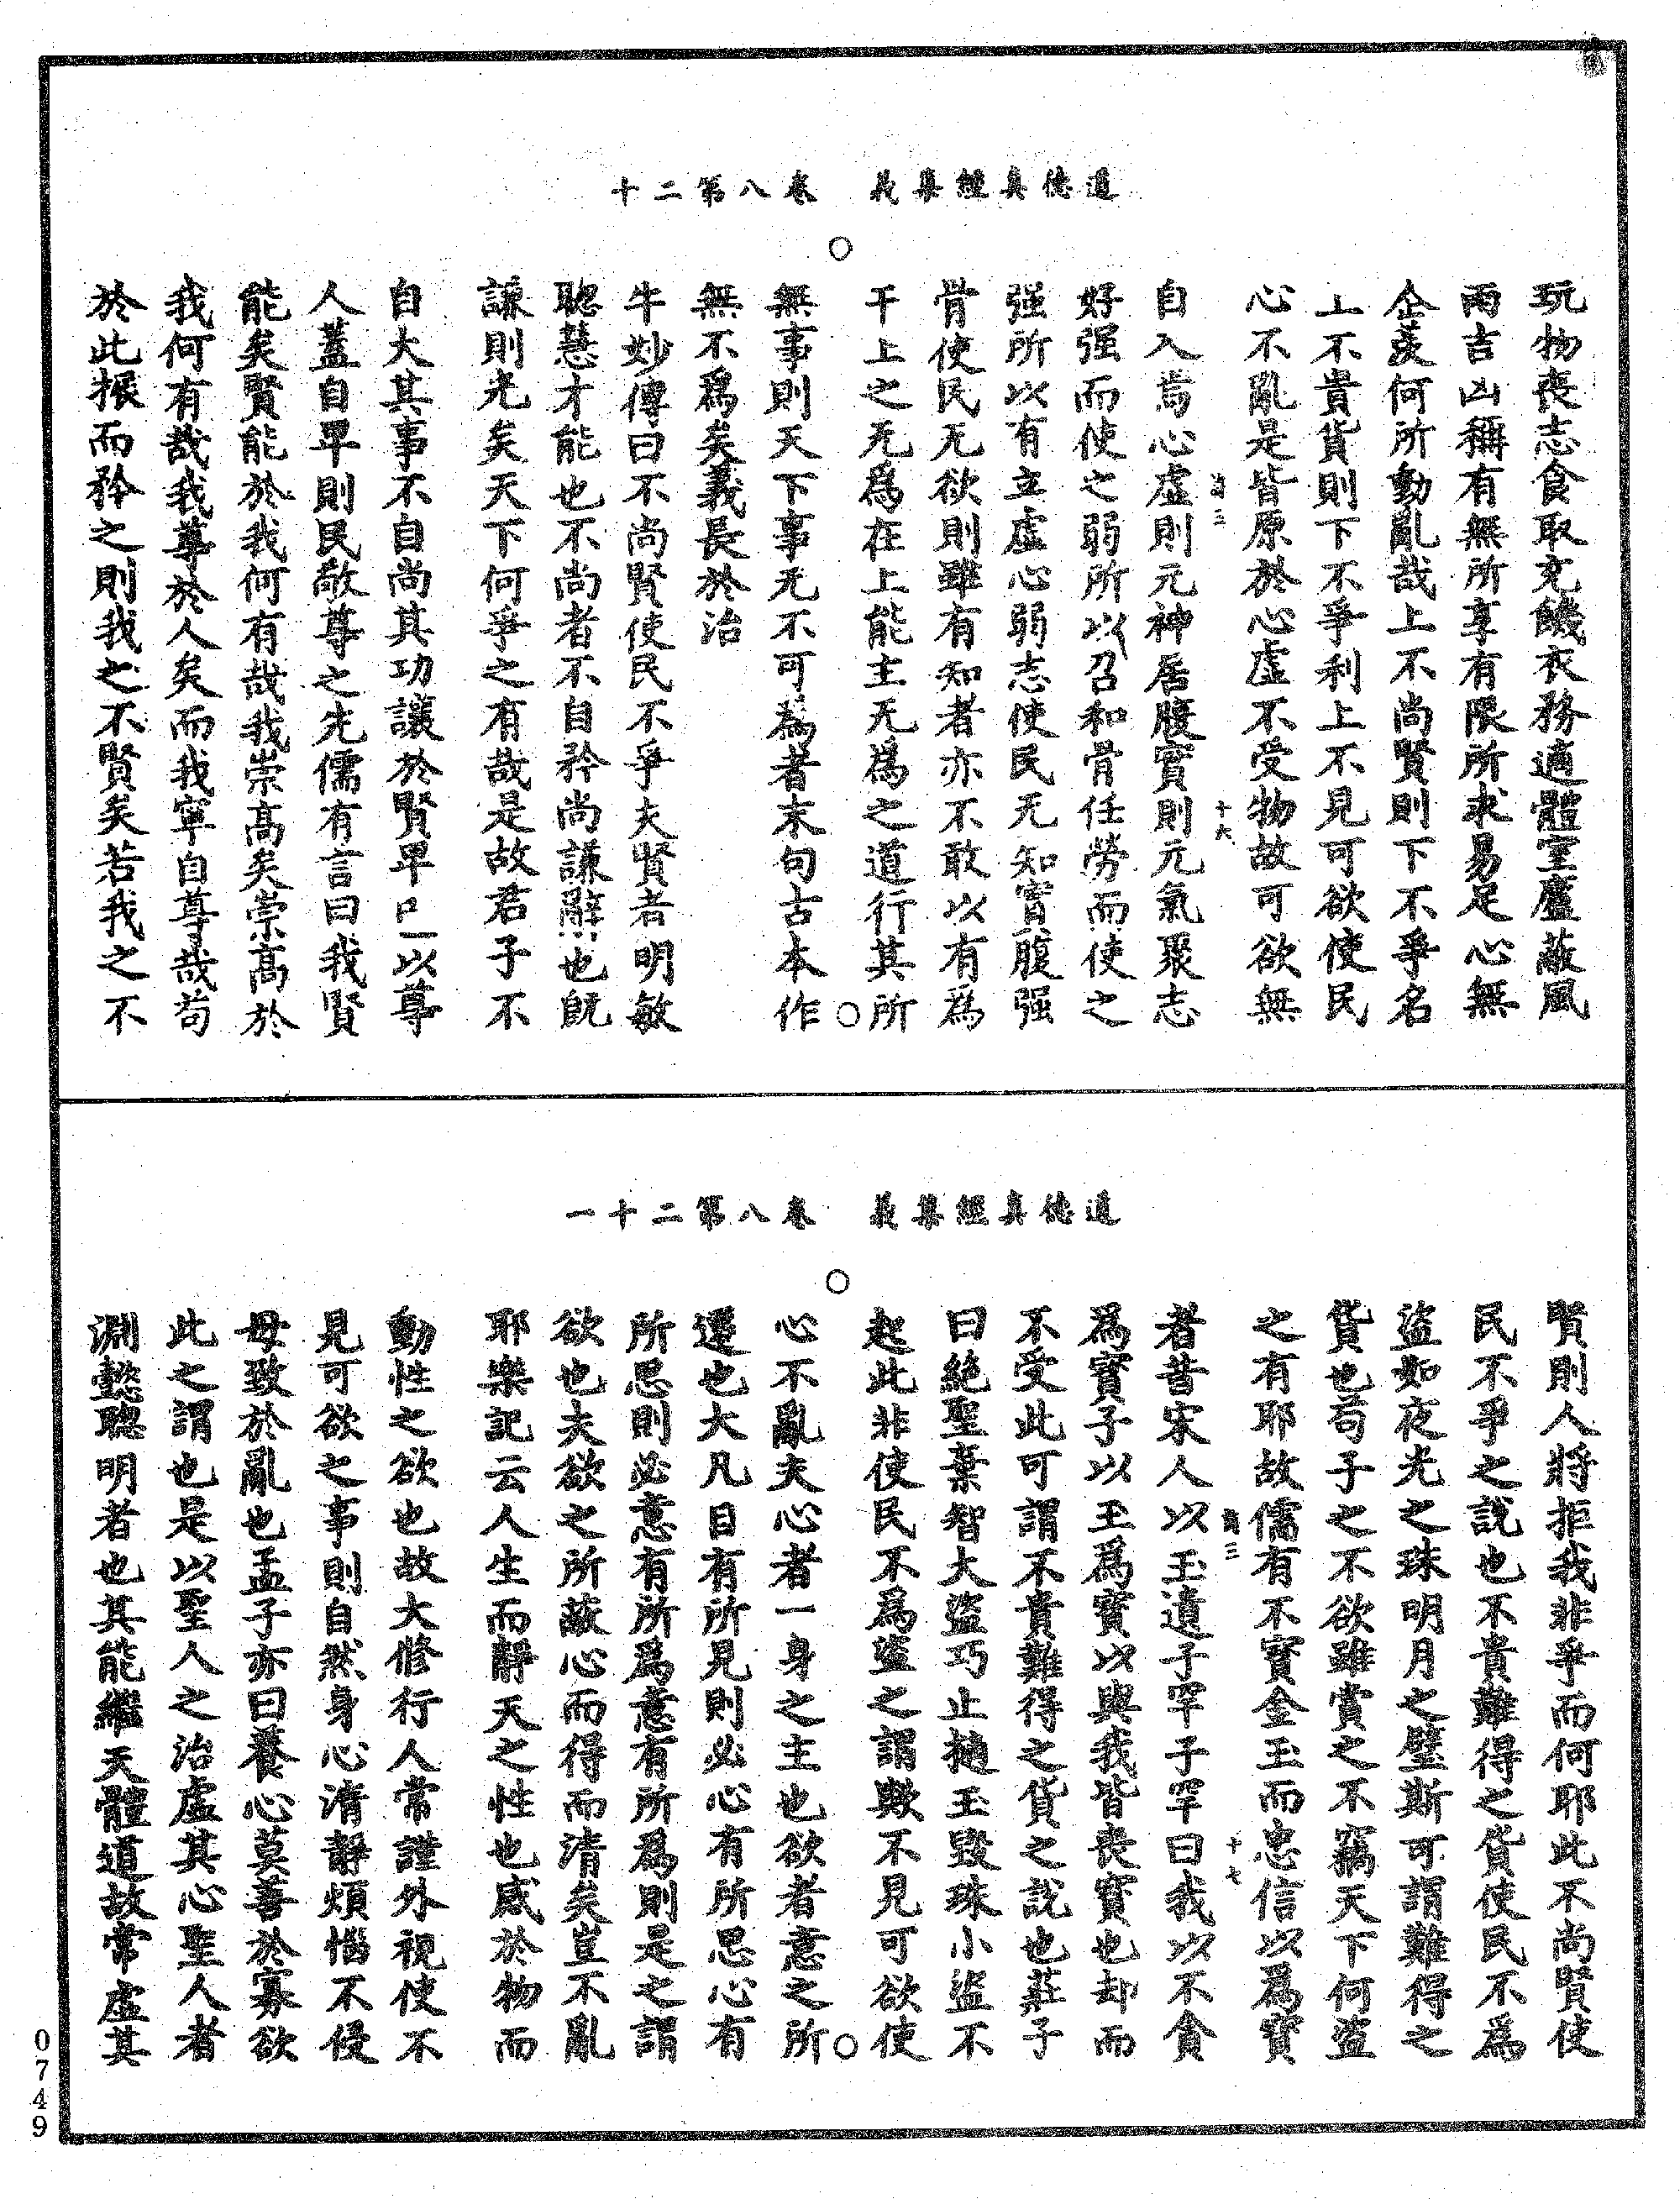 道德真經集義　卷八第二十
玩物喪志食取充饑衣務適體室廬蔽風
雨吉凶稱有無所享有限所求易足心無
企羨何所動亂哉上不尚賢則下不爭名
上不貴貨則下不爭利上不見可欲使民
心不亂是皆原於心虛不受物故可欲無
自入焉心虛則元神居腹實則元氣聚志
好强而使之弱所以召和骨任勞而使之
强所以有立虛心弱志使民无知實腹强
骨使民无欲則雖有知者亦不敢以有為
干上之无為在上能主无為之道行其所
無事則天下事无不可為者末句古本作
無不為矣義長於治
牛妙傳曰不尚賢使民不爭夫賢者明敏
聰慧才能也不尚者不自矜尚謙辭也既
謙則光矣天下何爭之有哉是故君子不
自大其事不自尚其功讓於賢卑己以尊
人蓋自卑則民敬尊之先儒有言曰我賢
能矣賢能於我何有哉我崇高矣崇高於
我何有哉我尊於人矣而我寧自尊哉苟
於此振而矜之則我之不賢矣若我之不
道德真經集義　卷八第二十一
賢則人將拒我非爭而何耶此不尚賢使
民不爭之說也不貴難得之貨使民不為
盜如夜光之珠明月之璧斯可謂難得之
貨也苟子之不欲雖賞之不竊天下何盜
之有耶故儒有不寶金玉而忠信以為寶
者昔宋人以玉遺子罕子罕曰我以不貪
為寶子以玉為寶以與我皆喪寶也却而
不受此可謂不貴難得之貨之說也莊子
曰絕聖棄智大盜巧止擿玉毀珠小盜不
起此非使民不為盜之謂歟不見可欲使
心不亂夫心者一身之主也欲者意之所
還也大凡目有所見則必心有所思心有
所思則必意有所為意有所為則是之謂
欲也夫欲之所蔽心而得而清矣豈不亂
耶樂記云人生而靜天之性也感於物而
動性之欲也故大修行人常謹外視使不
見可欲之事則自然身心清靜煩惱不侵
毋致於亂也孟子亦曰養心莫善於寡欲
此之謂也是以聖人之治虛其心聖人者
淵懿聰明者也其能繼天體道故常虛其
過三
十六
過三
十七
0749